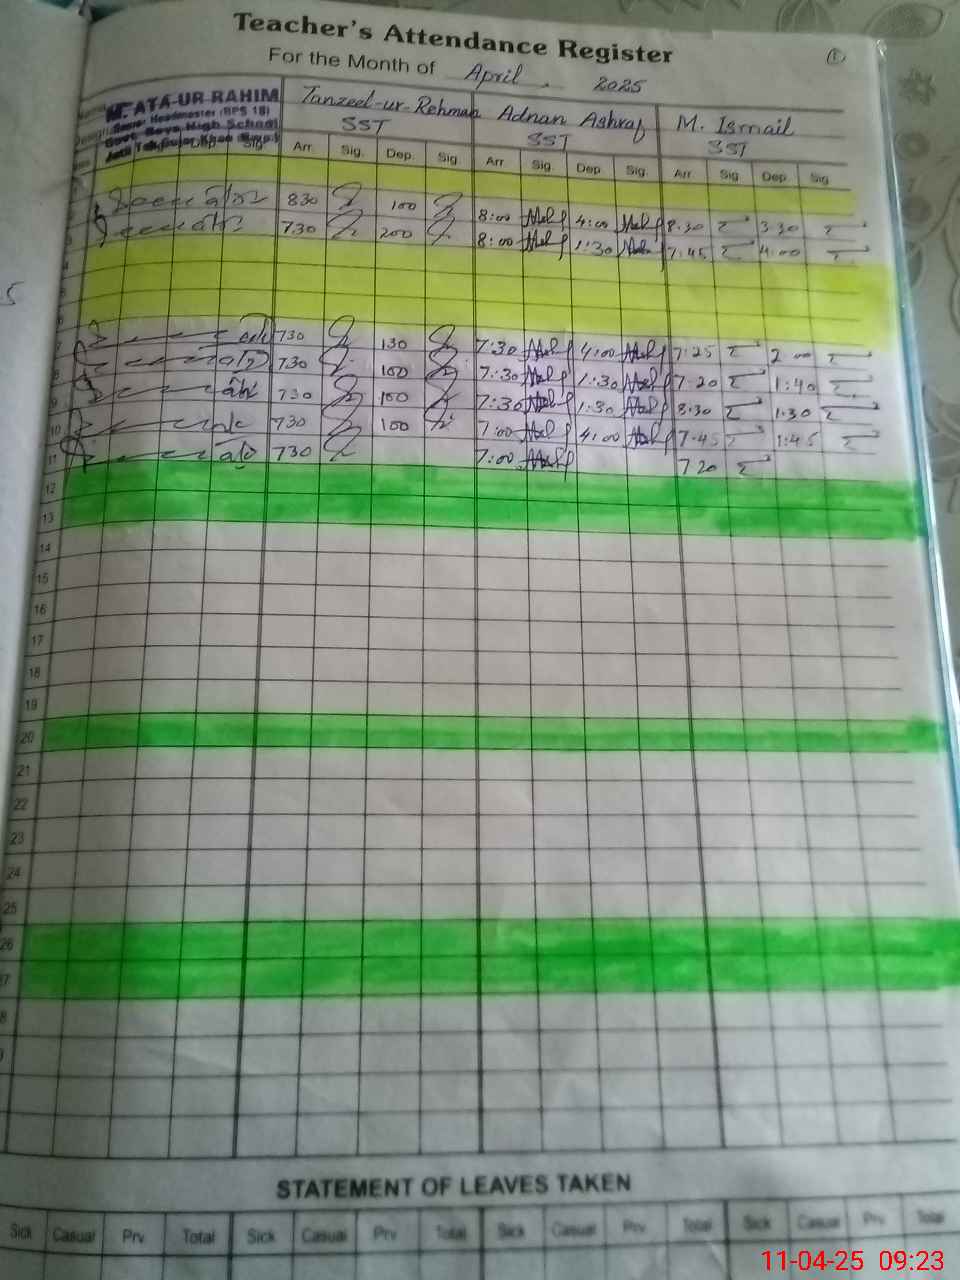 Teacher's Attendance Register
1
For the Month of April 2025
M. ATA-UR-RAHIM Tanzeel-ur-Rehman Adnan Ashraf M. Ismail
Headmaster (BPS 18) SST SST SST
Govt. Boys High School
Dep. Sig. Arr. Sig. Dep. Sig. Arr Sig. Dep Sig. Arr Sig Dep. Sig
830 100 8:00 4:00 8.30 3.30
730 200 8:00 1:30 7:45 4:00
4
5
6
7 730 130 7:30 4:00 7:25 2:00
8 730 100 7:30 1:30 7:20 1:40
9 730 100 7:30 1:30 8:30 1:30
10 730 100 7:00 4:00 7:45 1:45
11 730 7:00 7 20
12
13
14
15
16
17
18
19
20
21
22
23
24
25
26
7
8
9
STATEMENT OF LEAVES TAKEN
Sick Casual Prv Total Sick Casual Prv Total Sick Casual Prv Total Sick Casual Prv Total
11-04-25 09:23